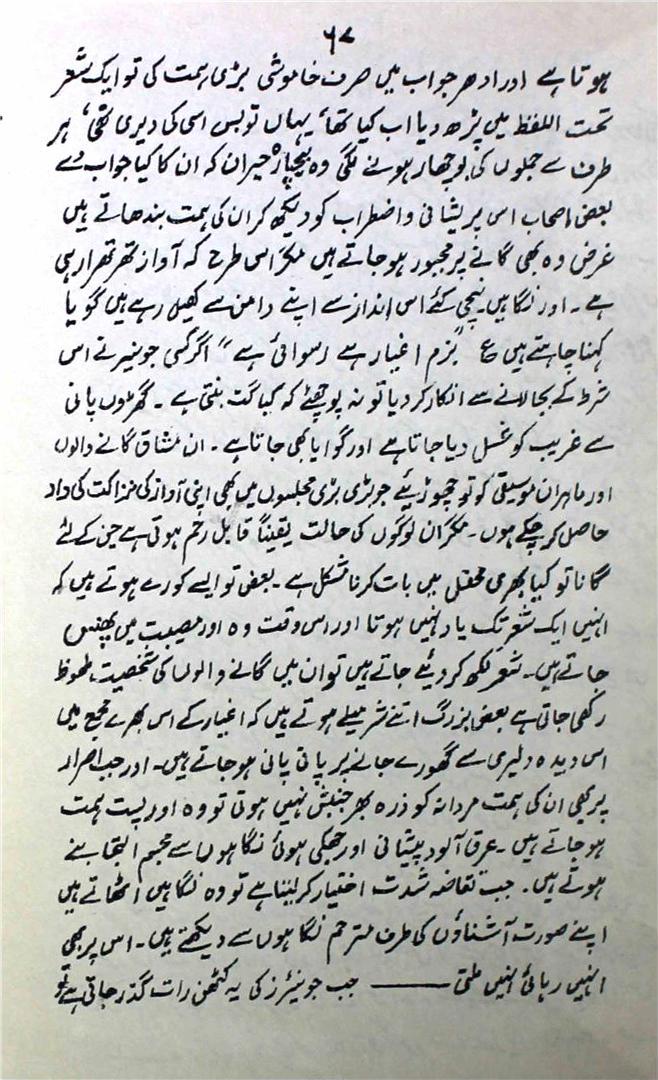 ۶۷
ہوتا ہے اور ادھر جواب میں صرف خاموشی بڑی ہمت کی تو ایک شعر
تحت اللفظ میں پڑھ دیا اب کیا تھا، یہاں تو بس اسی کی دیری تھی، ہر
طرف سے جملوں کی بوچھار ہونے لگی وہ بیچارہ حیران کہ ان کا کیا جواب دے
بعض اصحاب اس پریشانی و اضطراب کو دیکھ کر ان کی ہمت بندھاتے ہیں
غرض وہ بھی گانے پر مجبور ہو جاتے ہیں مگر اس طرح کہ آواز تھر تھرا رہی
ہے ۔ اور نگاہیں نیچی کئے اس انداز سے اپنے دامن سے کھیل رہے ہیں گویا
کہنا چاہتے ہیں ع "بزم اغیار ہے رسوائی ہے" اگر کسی جونیر نے اس
شرط کے بجا لانے سے انکار کر دیا تو نہ پوچھئے کہ کیا گت بنتی ہے ۔ گھڑوں پانی
سے غریب کو غسل دیا جاتا ہے اور گوایا بھی جاتا ہے ۔ ان مشاق گانے والوں
اور ماہران موسیقی کو تو چھوڑیئے جو بڑی بڑی مجلسوں میں بھی اپنی آواز کی نزاکت کی داد
حاصل کر چکے ہوں ۔ مگر ان لوگوں کی حالت یقیناً قابل رحم ہوتی ہے جن کے لئے
گانا تو کیا بھری محفل میں بات کرنا مشکل ہے ۔ بعض تو ایسے کورے ہوتے ہیں کہ
انہیں ایک شعر تک یاد نہیں ہوتا اور اس وقت وہ اور مصیبت میں پھنس
جاتے ہیں ۔ شعر لکھ کر دیئے جاتے ہیں تو ان میں گانے والوں کی شخصیت ملحوظ
رکھی جاتی ہے بعض بزرگ اتنے شرمیلے ہوتے ہیں کہ اغیار کے اس بھرے مجمع میں
اس دیدہ دلیری سے گھورے جانے پر پانی پانی ہو جاتے ہیں ۔ اور جب اصرار
پر بھی ان کی ہمت مردانہ کو ذرہ بھر جنبش نہیں ہوتی تو وہ اور پست ہمت
ہو جاتے ہیں ۔ عرق آلود پیشانی اور جھکی ہوئی نگاہوں سے مجسم التجا بنے
ہوتے ہیں ۔ جب تقاضہ شدت اختیار کر لیتا ہے تو وہ نگاہیں اٹھاتے ہیں
اپنے صورت آشناؤں کی طرف مترحم نگاہوں سے دیکھتے ہیں ۔ اس پر بھی
انہیں رہائی نہیں ملتی ——— جب جونیئرز کی یہ کٹھن رات گذر جاتی ہے تو